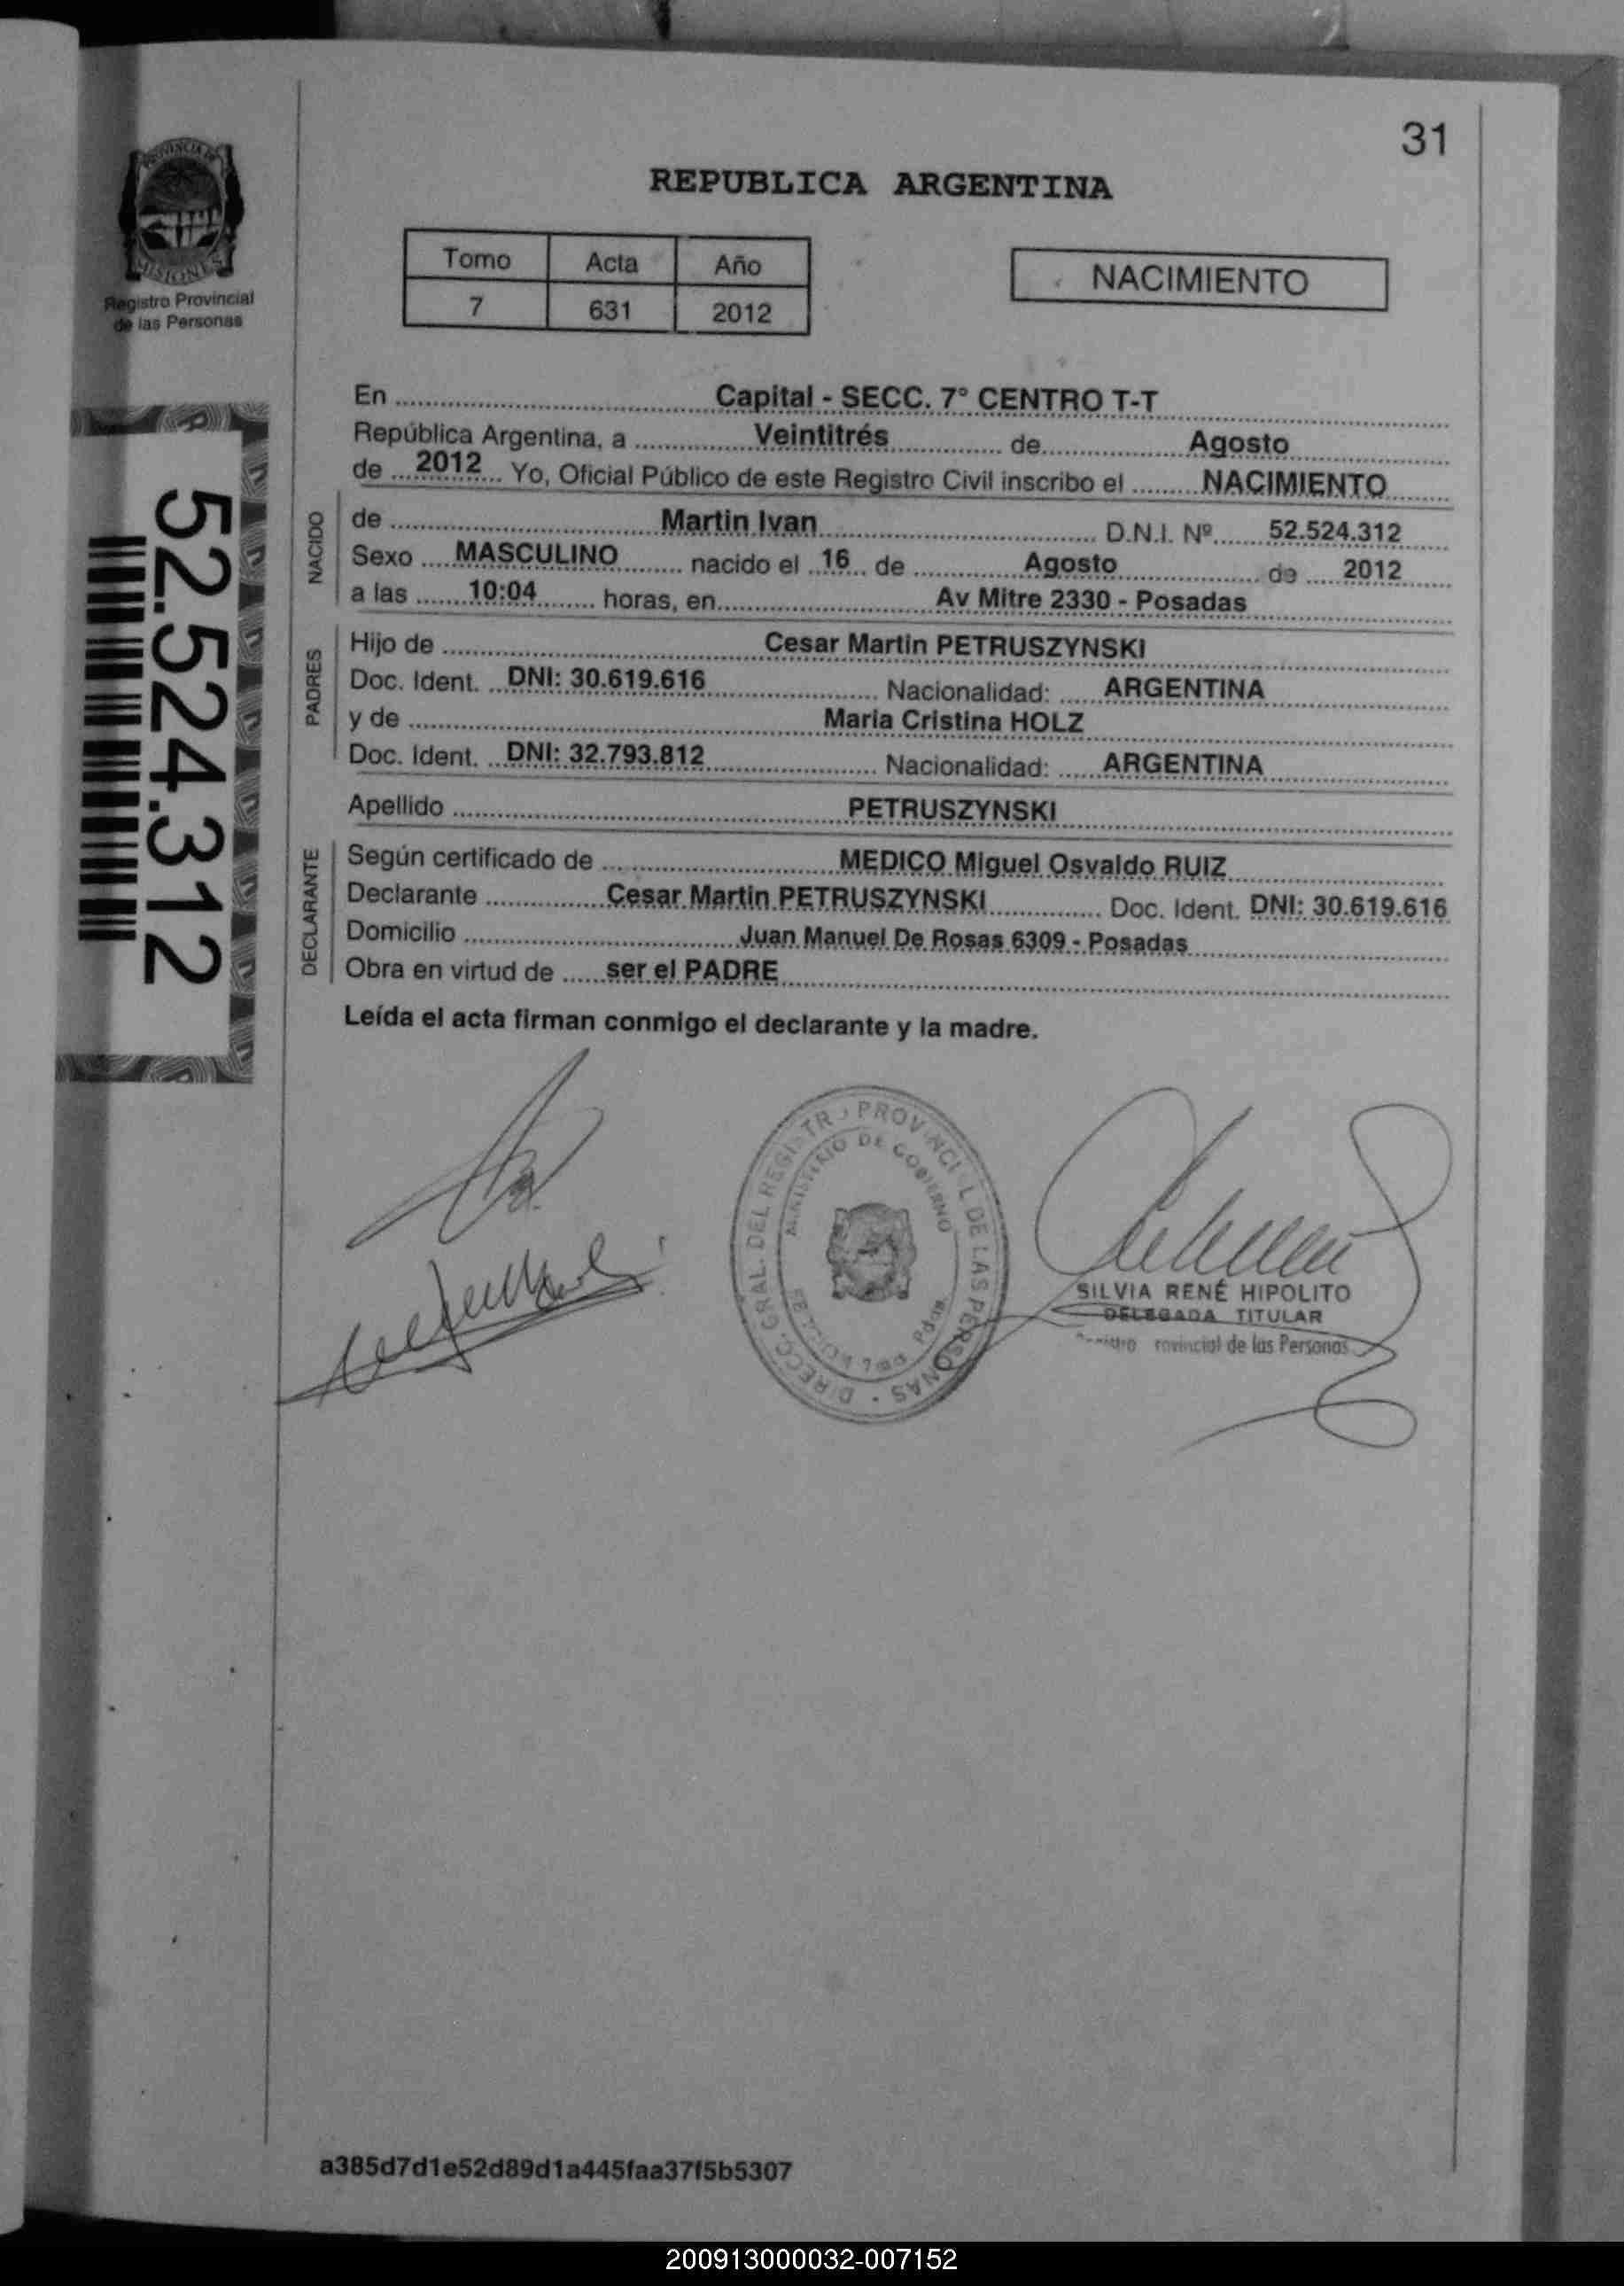 31
PROVINCIA DE
MISIONES
Registro Provincial
de las Personas
REPUBLICA ARGENTINA
Tomo Acta Año
7 631 2012
NACIMIENTO
52.524.312
En Capital - SECC. 7° CENTRO T-T
República Argentina, a Veintitrés de Agosto
de 2012 Yo, Oficial Público de este Registro Civil inscribo el NACIMIENTO
NACIDO
de Martin Ivan D.N.I. Nº 52.524.312
Sexo MASCULINO nacido el 16 de Agosto de 2012
a las 10:04 horas, en Av Mitre 2330 - Posadas
PADRES
Hijo de Cesar Martin PETRUSZYNSKI
Doc. Ident. DNI: 30.619.616 Nacionalidad: ARGENTINA
y de Maria Cristina HOLZ
Doc. Ident. DNI: 32.793.812 Nacionalidad: ARGENTINA
Apellido PETRUSZYNSKI
DECLARANTE
Según certificado de MEDICO Miguel Osvaldo RUIZ
Declarante Cesar Martin PETRUSZYNSKI Doc. Ident. DNI: 30.619.616
Domicilio Juan Manuel De Rosas 6309 - Posadas
Obra en virtud de ser el PADRE
Leída el acta firman conmigo el declarante y la madre.
DIRECC. GRAL. DEL REGISTR PROVINCI L DE LAS PERSONAS
MINISTERIO DE GOBIERNO
SILVIA RENÉ HIPOLITO
DELEGADA TITULAR
de las Personas
a385d7d1e52d89d1a445faa37f5b5307
200913000032-007152